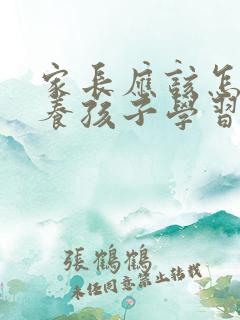 家長應該怎
養孩子學習
張鶴鶴
未任同意禁止轉載